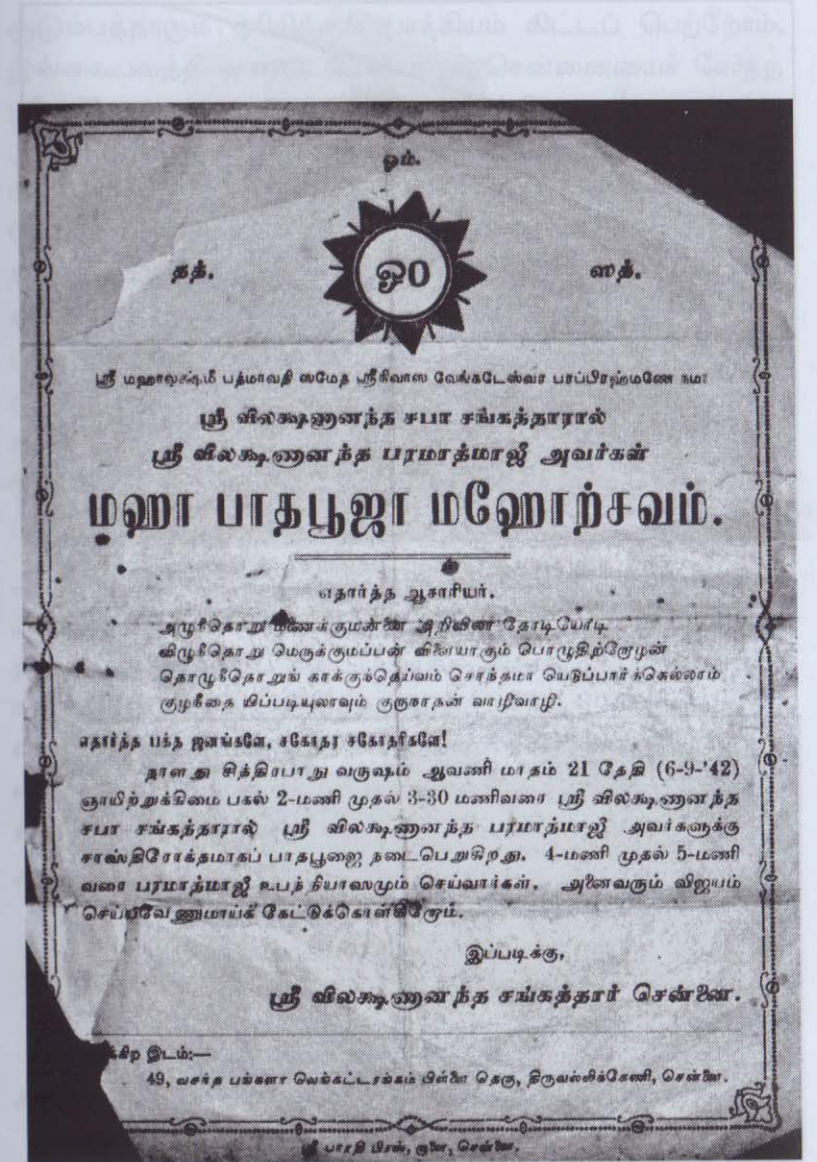 ஓம்.
தத். ஓ0 ஸத்.
ஸ்ரீ மஹாலக்ஷ்மீ பத்மாவதி ஸமேத ஸ்ரீநிவாஸ வேங்கடேஸ்வர பரப்பிரஹ்மணே நம:
ஸ்ரீ விலக்ஷணானந்த சபா சங்கத்தாரால்
ஸ்ரீ விலக்ஷணானந்த பரமாத்மாஜீ அவர்கள்
மஹா பாதபூஜா மஹோற்சவம்.
எதார்த்த ஆசாரியர்.
அழுந்தொறு மணைக்குமன்னை அறிவிலா தோடியோடி
விழுந்தொறு மெருக்குமப்பன் விளையாகும் பொழுதிற்றோழன்
தொழுந்தொறுங் காக்குந்தெய்வம் சொந்தமா யெடுப்பார்க்கெல்லாம்
குழந்தை யிப்படியுலாவும் குருநாதன் வாழிவாழி.
எதார்த்த பக்த ஜனங்களே, சகோதர சகோதரிகளே!
நாளது சித்திரபானு வருஷம் ஆவணி மாதம் 21 தேதி (6-9-'42)
ஞாயிற்றுக்கிமை பகல் 2-மணி முதல் 3-30 மணிவரை ஸ்ரீ விலக்ஷணானந்த
சபா சங்கத்தாரால் ஸ்ரீ விலக்ஷணானந்த பரமாத்மாஜீ அவர்களுக்கு
சாஸ்திரோக்தமாகப் பாதபூஜை நடைபெறுகிறது. 4-மணி முதல் 5-மணி
வரை பரமாத்மாஜீ உபந்நியாஸமும் செய்வார்கள். அனைவரும் விஜயம்
செய்யவேணுமாய்க் கேட்டுக்கொள்கிறோம்.
இப்படிக்கு,
ஸ்ரீ விலக்ஷணானந்த சங்கத்தார் சென்னை.
இடம்:—
49, வசந்த பங்களா வெங்கட்டரங்கம் பிள்ளை தெரு, திருவல்லிக்கேணி, சென்னை.
ஸ்ரீ பாரதி பிரஸ், சென்னை.